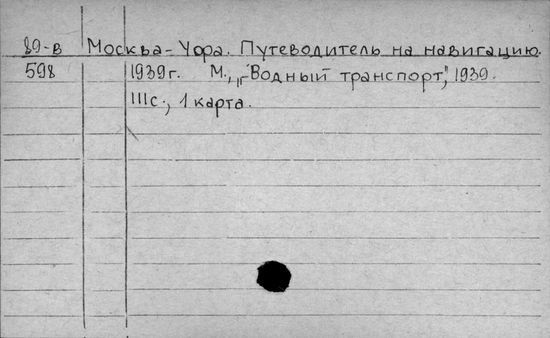 89-в Москва-Уфа. Путеводитель на навигацию.
598 1939г. М., „Водный транспорт," 1939.
111с., 1 карта.